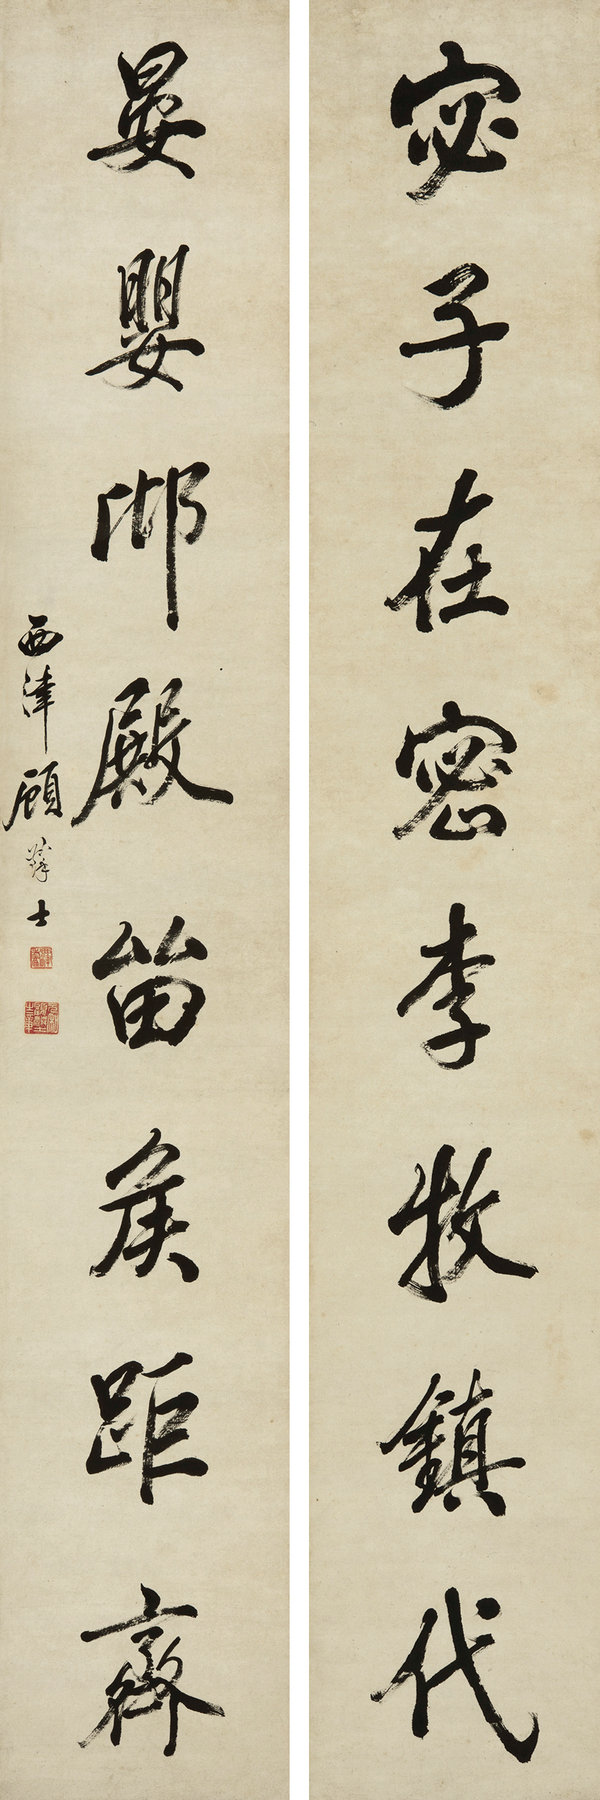 宓子在密李牧鎮代
晏嬰殿苗矦距齊
西津顧士